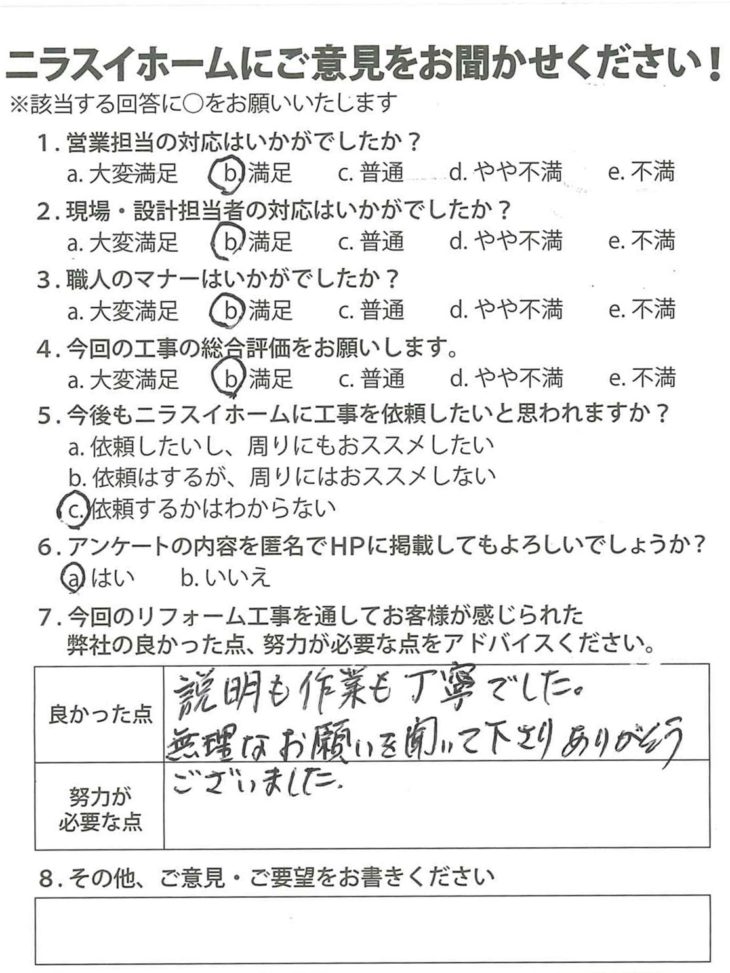 ニラスイホームにご意見をお聞かせください！
※該当する回答に○をお願いいたします
1．営業担当の対応はいかがでしたか？
a. 大変満足 b. 満足 c. 普通 d. やや不満 e. 不満
2．現場・設計担当者の対応はいかがでしたか？
a. 大変満足 b. 満足 c. 普通 d. やや不満 e. 不満
3．職人のマナーはいかがでしたか？
a. 大変満足 b. 満足 c. 普通 d. やや不満 e. 不満
4．今回の工事の総合評価をお願いします。
a. 大変満足 b. 満足 c. 普通 d. やや不満 e. 不満
5．今後もニラスイホームに工事を依頼したいと思われますか？
a. 依頼したいし、周りにもおススメしたい
b. 依頼はするが、周りにはおススメしない
c. 依頼するかはわからない
6．アンケートの内容を匿名でHPに掲載してもよろしいでしょうか？
a はい b. いいえ
7．今回のリフォーム工事を通してお客様が感じられた
弊社の良かった点、努力が必要な点をアドバイスください。
良かった点
説明も作業も丁寧でした。
無理なお願いを聞いて下さりありがとう
ございました.
努力が
必要な点
8．その他、ご意見・ご要望をお書きください